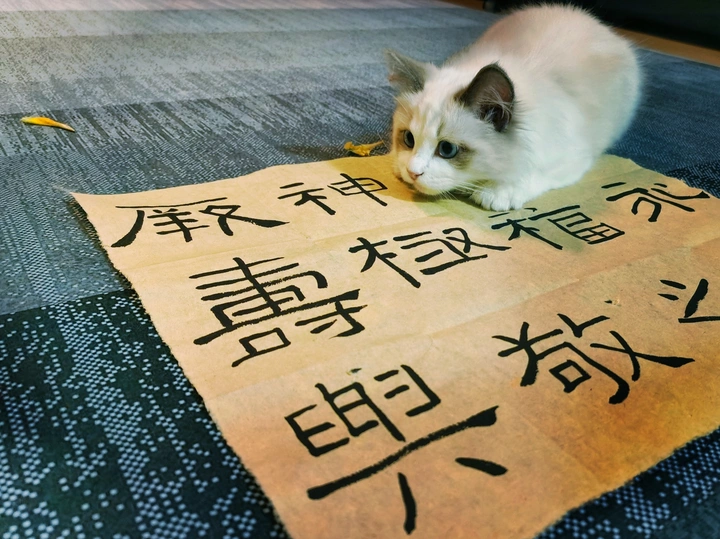 厥神
壽極福永
與敬